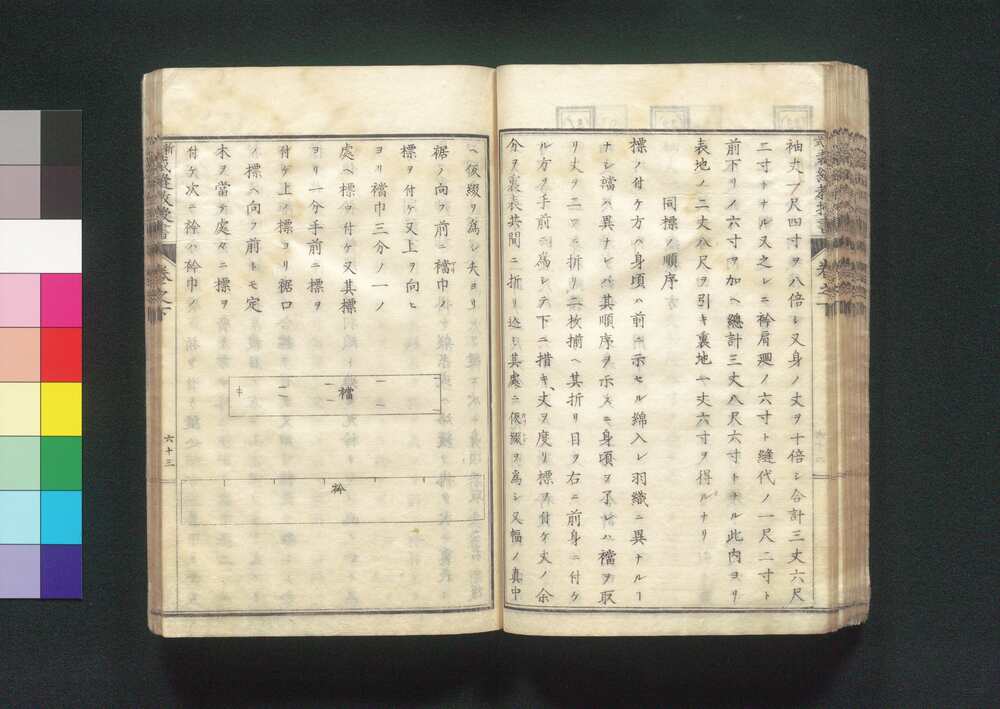 袖丈一尺四寸ヲ八倍シ又身ノ丈ヲ十倍シ合計三丈六尺
二寸トナル又之レニ衿肩廻ノ六寸ト縫代ノ一尺二寸ト
前下リノ六寸ヲ加ヘ總計三丈八尺六寸トナル此内ヨリ
表地ノ二丈八尺ヲ引キ裏地一丈六寸ヲ得ルナリ
同標ノ順序
標ノ付ケ方ハ身頃ハ前ニ示セル綿入レ羽織ニ異トナルヿ
ナシ襠ハ異ナレバ其順序ヲ示スニ身頃ヲ了レバ襠ヲ取
リ丈ヲ二ツニ折リ二枚揃ヘ其折リ目ヲ右ニ前身ニ付ケ
ル方ヲ手前ニ為シテ下ニ措キ丈ヲ度リ標ヲ付ケ丈ノ余
分ヲ裏表共間ニ折リ込ミ其處ニ仮綴ヲ為シ又幅ノ真中
ヘ仮綴ヲ為シ夫ヨリ
裾ノ向フ前ニ襠巾ノ
標ヲ付ケ又上ヲ向ヒ
ヨリ襠巾三分ノ一ノ
處ヘ標ヲ付ケ又其標
ヨリ一分手前ニ標ヲ
付ケ上ノ標ヨリ裾口
ノ標ヘ向フ前トモ定
木ヲ當テ處々ニ標ヲ
付ケ次ニ衿ハ衿巾ノ
襠
衿
巻之下
六十三